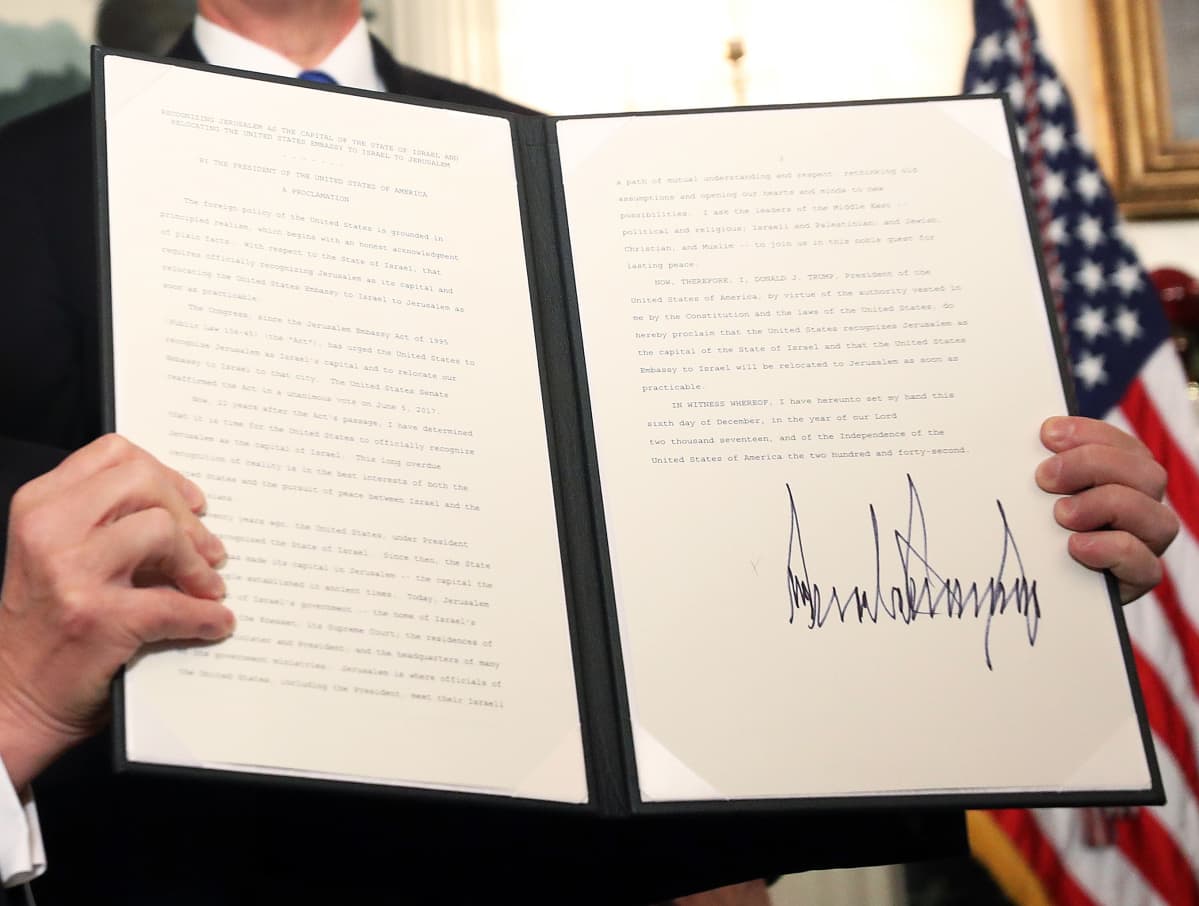 RECOGNIZING JERUSALEM AS THE CAPITAL OF THE STATE OF ISRAEL AND
RELOCATING THE UNITED STATES EMBASSY TO ISRAEL TO JERUSALEM
- - - - - - -
BY THE PRESIDENT OF THE UNITED STATES OF AMERICA
A PROCLAMATION
The foreign policy of the United States is grounded in
principled realism, which begins with an honest acknowledgment
of plain facts. With respect to the State of Israel, that
requires officially recognizing Jerusalem as its capital and
relocating the United States Embassy to Israel to Jerusalem as
soon as practicable.
The Congress, since the Jerusalem Embassy Act of 1995
(Public Law 104-45) (the "Act"), has urged the United States to
recognize Jerusalem as Israel's capital and to relocate our
Embassy to Israel to that city. The United States Senate
reaffirmed the Act in a unanimous vote on June 5, 2017.
Now, 22 years after the Act's passage, I have determined
that it is time for the United States to officially recognize
Jerusalem as the capital of Israel. This long overdue
recognition of reality is in the best interests of both the
States and the pursuit of peace between Israel and the
years ago, the United States, under President
recognized the State of Israel. Since then, the State
has made its capital in Jerusalem -- the capital the
established in ancient times. Today, Jerusalem
of Israel's government -- the home of Israel's
the Knesset; its Supreme Court; the residences of
Minister and President; and the headquarters of many
government ministries. Jerusalem is where officials of
the United States, including the President, meet their Israeli
a path of mutual understanding and respect, rethinking old
assumptions and opening our hearts and minds to new
possibilities. I ask the leaders of the Middle East --
political and religious; Israeli and Palestinian; and Jewish,
Christian, and Muslim -- to join us in this noble quest for
lasting peace.
NOW, THEREFORE, I, DONALD J. TRUMP, President of the
United States of America, by virtue of the authority vested in
me by the Constitution and the laws of the United States, do
hereby proclaim that the United States recognizes Jerusalem as
the capital of the State of Israel and that the United States
Embassy to Israel will be relocated to Jerusalem as soon as
practicable.
IN WITNESS WHEREOF, I have hereunto set my hand this
sixth day of December, in the year of our Lord
two thousand seventeen, and of the Independence of the
United States of America the two hundred and forty-second.